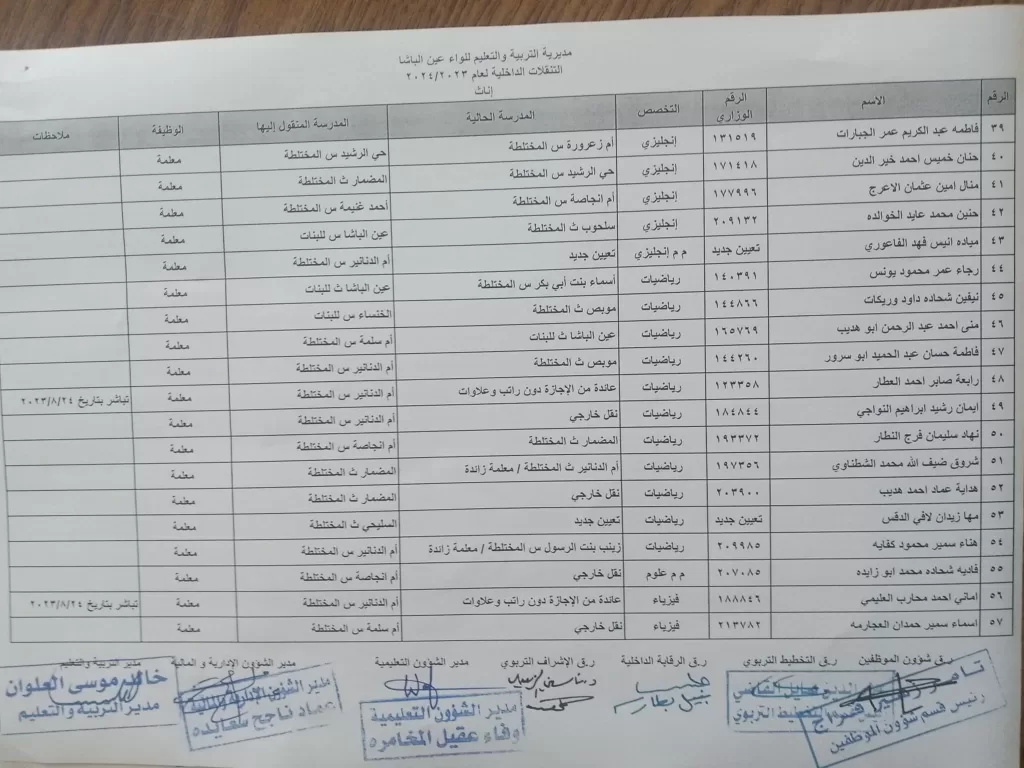 مديرية التربية والتعليم للواء عين الباشا
التنقلات الداخلية لعام ٢٠٢٤/٢٠٢٣
إناث
الرقم الاسم الرقم الوزاري التخصص المدرسة الحالية المدرسة المنقول إليها الوظيفة ملاحظات
٣٩ فاطمه عبد الكريم عمر الجبارات ١٣١٥١٩ إنجليزي أم زعرورة س المختلطة حي الرشيد س المختلطة معلمة
٤٠ حنان خميس احمد خير الدين ١٧١٤١٨ إنجليزي حي الرشيد س المختلطة المضمار ث المختلطة معلمة
٤١ منال امين عثمان الاعرج ١٧٧٩٩٦ إنجليزي أم انجاصة س المختلطة أحمد غنيمة س المختلطة معلمة
٤٢ حنين محمد عايد الخوالده ٢٠٩١٣٢ إنجليزي سلحوب ث المختلطة عين الباشا س للبنات معلمة
٤٣ مياده انيس فهد الفاعوري تعيين جديد م م إنجليزي تعيين جديد أم الدنانير س المختلطة معلمة
٤٤ رجاء عمر محمود يونس ١٤٠٣٩١ رياضيات أسماء بنت أبي بكر س المختلطة عين الباشا ث للبنات معلمة
٤٥ نيفين شحاده داود وريكات ١٤٤٨٦٦ رياضيات موبص ث المختلطة الخنساء س للبنات معلمة
٤٦ منى احمد عبد الرحمن ابو هديب ١٦٥٧٦٩ رياضيات عين الباشا ث للبنات أم سلمة س المختلطة معلمة
٤٧ فاطمة حسان عبد الحميد ابو سرور ١٤٤٢٦٠ رياضيات موبص ث المختلطة أم الدنانير س المختلطة معلمة
٤٨ رابعة صابر احمد العطار ١٢٣٣٥٨ رياضيات عائدة من الإجازة دون راتب وعلاوات أم الدنانير س المختلطة معلمة تباشر بتاريخ ٢٠٢٣/٨/٢٤
٤٩ ايمان رشيد ابراهيم النواجي ١٨٤٨٤٤ رياضيات نقل خارجي أم الدنانير س المختلطة معلمة
٥٠ نهاد سليمان فرج النطار ١٩٣٣٧٢ رياضيات المضمار ث المختلطة أم انجاصة س المختلطة معلمة
٥١ شروق ضيف الله محمد الشطناوي ١٩٧٣٥٦ رياضيات أم الدنانير ث المختلطة / معلمة زائدة المضمار ث المختلطة معلمة
٥٢ هداية عماد احمد هديب ٢٠٣٩٠٠ رياضيات نقل خارجي المضمار ث المختلطة معلمة
٥٣ مها زيدان لافي الدقس تعيين جديد رياضيات تعيين جديد السليحي ث المختلطة معلمة
٥٤ هناء سمير محمود كفايه ٢٠٩٩٨٥ رياضيات زينب بنت الرسول س المختلطة / معلمة زائدة أم الدنانير س المختلطة معلمة
٥٥ فاديه شحاده محمد ابو زايده ٢٠٧٠٨٥ م م علوم نقل خارجي أم انجاصة س المختلطة معلمة
٥٦ اماني احمد محارب العليمي ١٨٨٨٤٦ فيزياء عائدة من الإجازة دون راتب وعلاوات أم الدنانير س المختلطة معلمة تباشر بتاريخ ٢٠٢٣/٨/٢٤
٥٧ اسماء سمير حمدان العجارمه ٢١٣٧٨٢ فيزياء نقل خارجي أم سلمة س المختلطة معلمة
ر.ق شؤون الموظفين ر.ق التخطيط التربوي ر.ق الرقابة الداخلية ر.ق الإشراف التربوي مدير الشؤون التعليمية مدير الشؤون الإدارية و المالية مدير التربية والتعليم
رئيس قسم شؤون الموظفين
التخطيط التربوي
نبيل بطارسه
مدير الشؤون التعليمية
وفاء عقيل المخامره
مدير الشؤون الإدارية والمالية
عماد ناجح سعايده
موسى العلوان
مدير التربية والتعليم